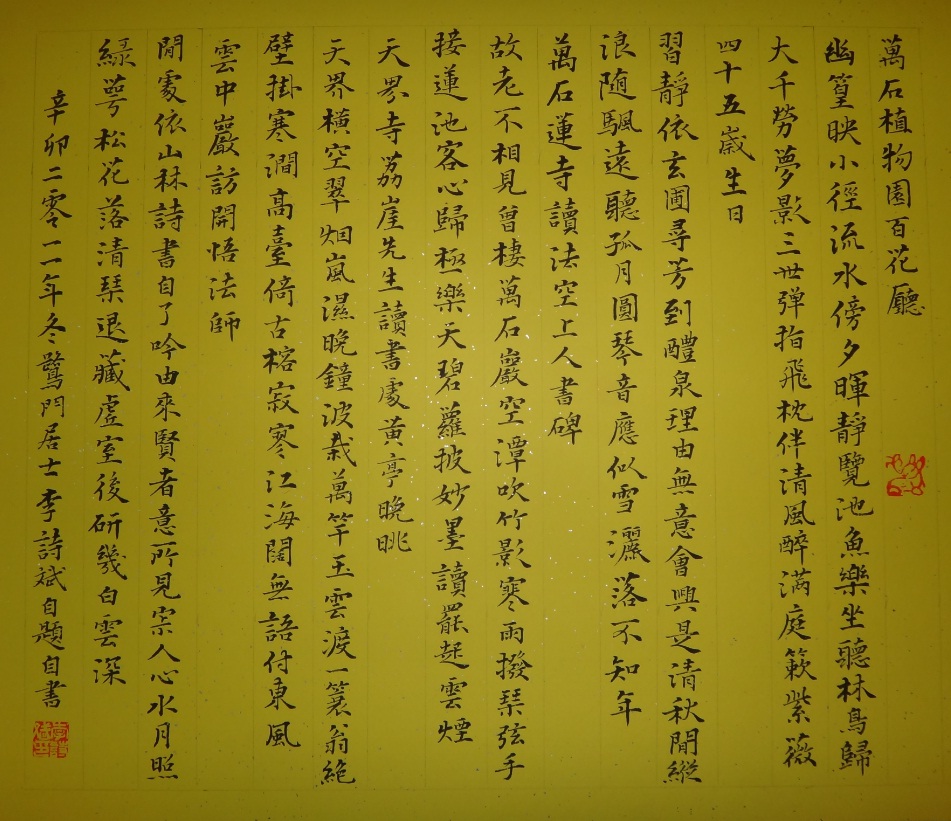 萬石植物園百花廳
幽篁映小徑流水傍夕暉靜覽池魚樂坐聽林鳥歸
大千勞夢影三世彈指飛枕伴清風醉滿庭簌紫薇
四十五歲生日
習靜依玄圃尋芳到醴泉理由無意會興是清秋閒縱
浪隨颿遠聽孤月圓琴音應似雪灑落不知年
萬石蓮寺讀法空上人書碑
故老不相見曾棲萬石巖空潭吹竹影寒雨撥琹弦手
接蓮池客心歸極樂天碧蘿披妙墨讀罷起雲煙
天界寺荔崖先生讀書處黃亭晚眺
天界橫空翠烟嵐濕晚鐘波栽萬竿玉雲渡一蓑翁絕
壁掛寒澗高臺倚古榕寂寥江海闊無語付東風
雲中巖訪開悟法師
閒處依山秫詩書自了吟由來賢者意所見宗人心水月照
綠萼松花落清琹退藏虛室後研幾白雲深
辛卯二零一一年冬鷺門居士李詩斌自題自書